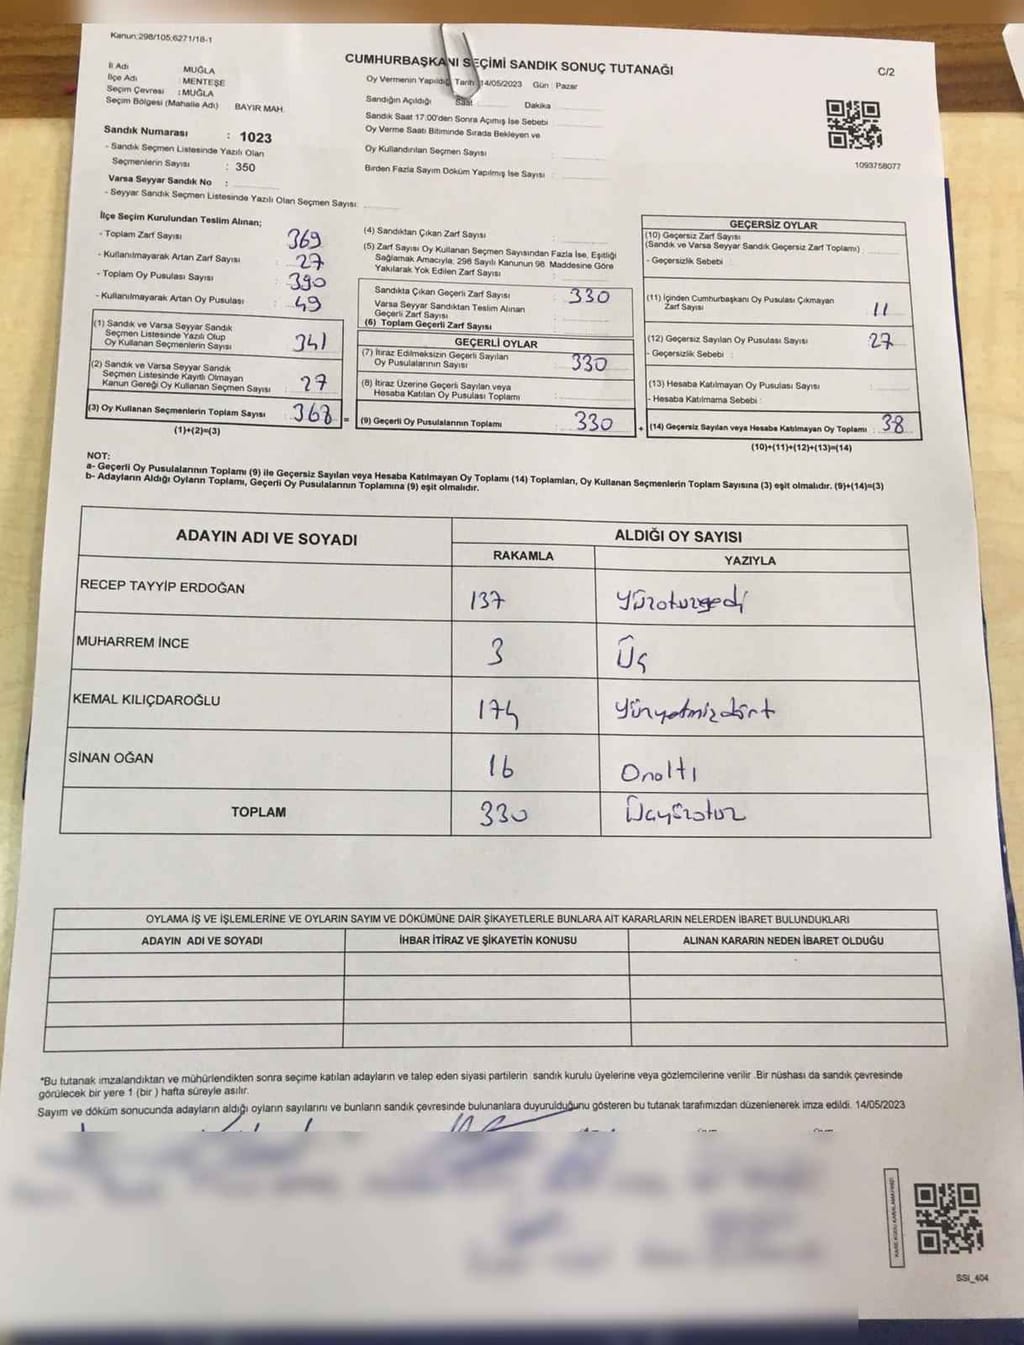 Kanun:298/105;6271/18-1
CUMHURBAŞKANI SEÇİMİ SANDIK SONUÇ TUTANAĞI
C/2
İl Adı MUĞLA
İlçe Adı : MENTEŞE
Seçim Çevresi : MUĞLA
Seçim Bölgesi (Mahalle Adı) BAYIR MAH.
Sandık Numarası : 1023
- Sandık Seçmen Listesinde Yazılı Olan
Seçmenlerin Sayısı : 350
Varsa Seyyar Sandık No :
- Seyyar Sandık Seçmen Listesinde Yazılı Olan Seçmen Sayısı:
Oy Vermenin Yapıldığı Tarih 14/05/2023 Gün : Pazar
Sandığın Açıldığı Saat Dakika
Sandık Saat 17.00'den Sonra Açımış İse Sebebi
Oy Verme Saati Bitiminde Sırada Bekleyen ve
Oy Kullandırılan Seçmen Sayısı
Birden Fazla Sayım Döküm Yapılmış İse Sayısı :
1093758077
İlçe Seçim Kurulundan Teslim Alınan;
- Toplam Zarf Sayısı : 369
- Kullanılmayarak Artan Zarf Sayısı : 27
- Toplam Oy Pusulası Sayısı : 390
- Kullanılmayarak Artan Oy Pusulası : 49
(1) Sandık ve Varsa Seyyar Sandık
Seçmen Listesinde Yazılı Olup
Oy Kullanan Seçmenlerin Sayısı : 341
(2) Sandık ve Varsa Seyyar Sandık
Seçmen Listesinde Kayıtlı Olmayan
Kanun Gereği Oy Kullanan Seçmen Sayısı : 27
(3) Oy Kullanan Seçmenlerin Toplam Sayısı : 368 =
(1)+(2)=(3)
(4) Sandıktan Çıkan Zarf Sayısı :
(5) Zarf Sayısı Oy Kullanan Seçmen Sayısından Fazla İse, Eşitliği
Sağlamak Amacıyla, 298 Sayılı Kanunun 98. Maddesine Göre
Yakılarak Yok Edilen Zarf Sayısı :
Sandıkta Çıkan Geçerli Zarf Sayısı : 330
Varsa Seyyar Sandıktan Teslim Alınan
Geçerli Zarf Sayısı :
(6) Toplam Geçerli Zarf Sayısı :
GEÇERLİ OYLAR
(7) İtiraz Edilmeksizin Geçerli Sayılan
Oy Pusulalarının Sayısı : 330
(8) İtiraz Üzerine Geçerli Sayılan veya
Hesaba Katılan Oy Pusulası Toplamı :
(9) Geçerli Oy Pusulalarının Toplamı : 330 +
GEÇERSİZ OYLAR
(10) Geçersiz Zarf Sayısı
(Sandık ve Varsa Seyyar Sandık Geçersiz Zarf Toplamı) :
- Geçersizlik Sebebi :
(11) İçinden Cumhurbaşkanı Oy Pusulası Çıkmayan
Zarf Sayısı : 11
(12) Geçersiz Sayılan Oy Pusulası Sayısı : 27
- Geçersizlik Sebebi :
(13) Hesaba Katılmayan Oy Pusulası Sayısı :
- Hesaba Katılmama Sebebi :
(14) Geçersiz Sayılan veya Hesaba Katılmayan Oy Toplamı : 38
(10)+(11)+(12)+(13)=(14)
NOT:
a- Geçerli Oy Pusulalarının Toplamı (9) ile Geçersiz Sayılan veya Hesaba Katılmayan Oy Toplamı (14) Toplamları, Oy Kullanan Seçmenlerin Toplam Sayısına (3) eşit olmalıdır. (9)+(14)=(3)
b- Adayların Aldığı Oyların Toplamı, Geçerli Oy Pusulalarının Toplamına (9) eşit olmalıdır.
ADAYIN ADI VE SOYADI ALDIĞI OY SAYISI
RAKAMLA YAZIYLA
RECEP TAYYİP ERDOĞAN 137 Yüzotuzyedi
MUHARREM İNCE 3 Üç
KEMAL KILIÇDAROĞLU 174 Yüzyetmişdört
SİNAN OĞAN 16 Onaltı
TOPLAM 330 Üçyüzotuz
OYLAMA İŞ VE İŞLEMLERİNE VE OYLARIN SAYIM VE DÖKÜMÜNE DAİR ŞİKAYETLERLE BUNLARA AİT KARARLARIN NELERDEN İBARET BULUNDUKLARI
ADAYIN ADI VE SOYADI İHBAR İTİRAZ VE ŞİKAYETİN KONUSU ALINAN KARARIN NEDEN İBARET OLDUĞU
*Bu tutanak imzalandıktan ve mühürlendikten sonra seçime katılan adayların ve talep eden siyasi partilerin sandık kurulu üyelerine veya gözlemcilerine verilir .Bir nüshası da sandık çevresinde
görülecek bir yere 1 (bir ) hafta süreyle asılır.
Sayım ve döküm sonucunda adayların aldığı oyların sayılarını ve bunların sandık çevresinde bulunanlara duyurulduğunu gösteren bu tutanak tarafımızdan düzenlenerek imza edildi. 14/05/2023
SSI_404